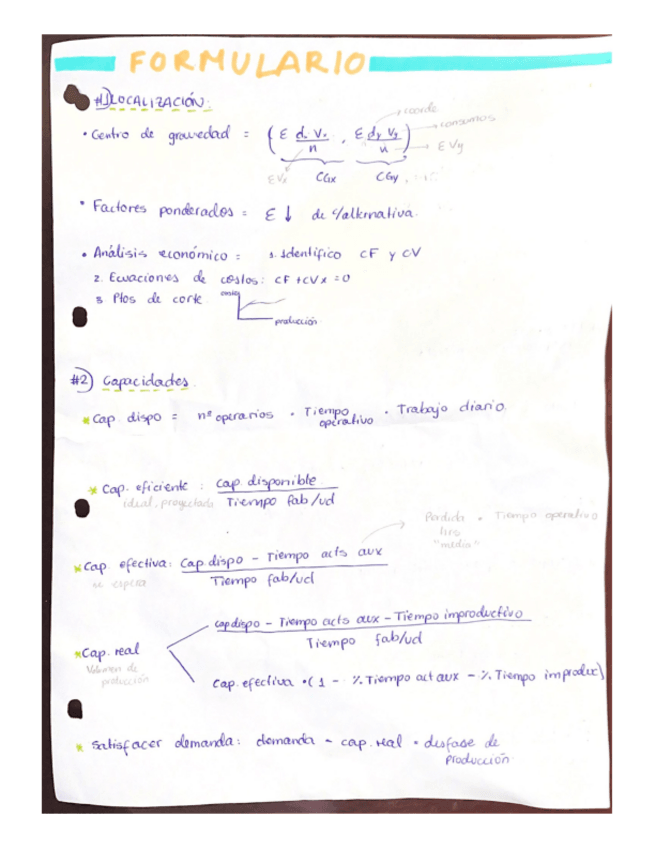 FORMULARIO
#1) LOCALIZACIÓN:
• Centro de gravedad = ( Σ dx Vx / n , Σ dy Vy / n ) → coorde → consumos → Σ Vy
ΣVx CGx CGy
• Factores ponderados = Σ ↓ de c/alternativa.
• Análisis económico = 1. Identifico CF y CV
2. Ecuaciones de costos: CF + CVx = 0
3. Ptos de corte costo
producción
#2) Capacidades.
* Cap. dispo = nº operarios · Tiempo operativo · Trabajo diario.
* Cap. eficiente : Cap. disponible / Tiempo fab/ud
ideal, proyectada
Perdida · Tiempo operativo
hrs
"media"
* Cap efectiva: Cap dispo - Tiempo acts aux / Tiempo fab/ud
se espera
* Cap. real
Volumen de producción
cap dispo - Tiempo acts aux - Tiempo improductivo / Tiempo fab/ud
Cap. efectiva · (1 - % Tiempo act aux - % Tiempo improduc)
* Satisfacer demanda: demanda - cap. real · desfase de producción